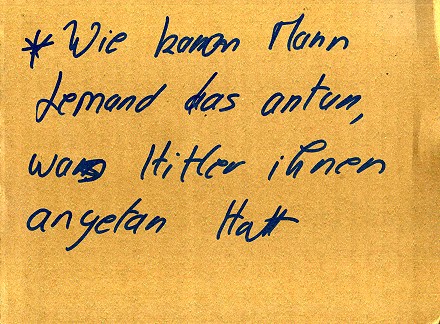 * Wie kann Mann
Jemand das antun,
was Hitler ihnen
angetan Hatt